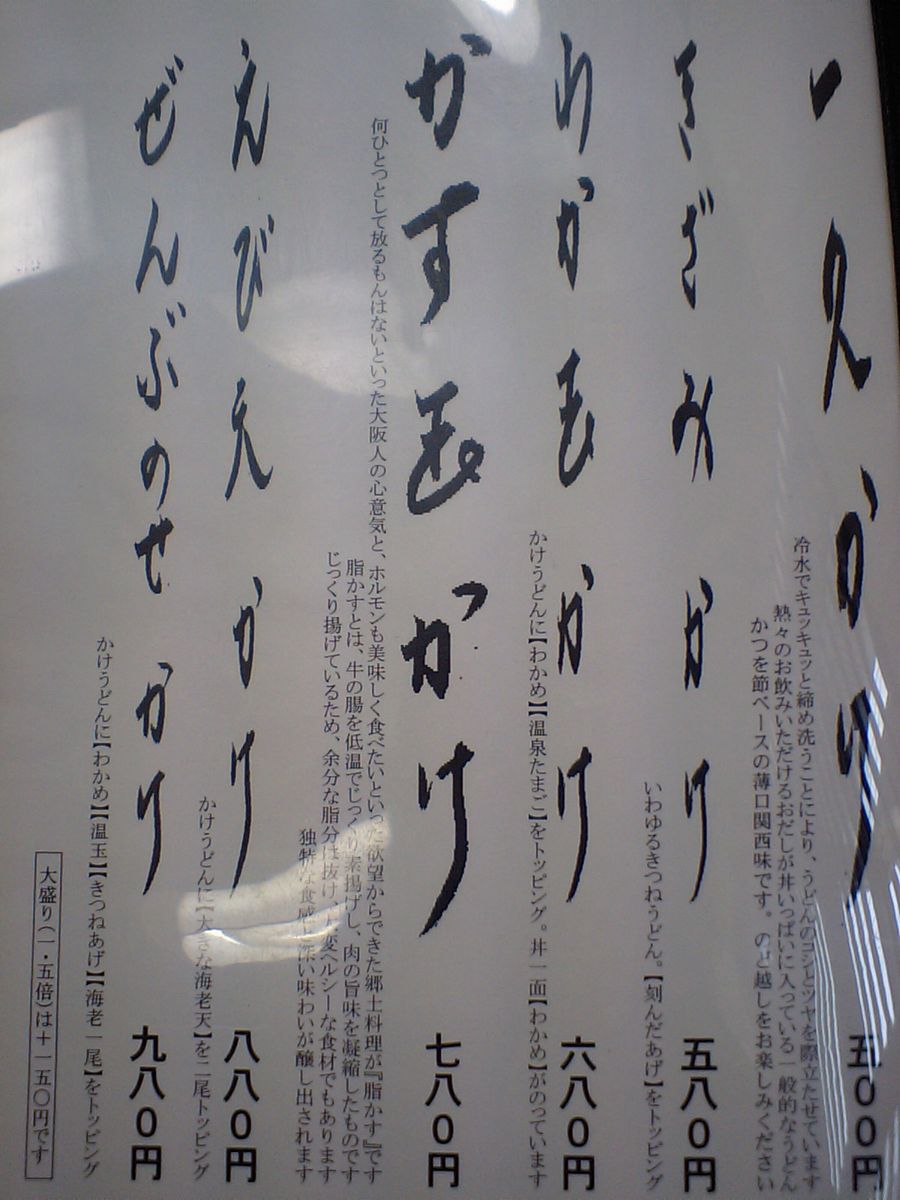 一
かけ
五〇〇円
冷水でキュッキュッと締め洗うことにより、うどんのコシとツヤを際立たせています
熱々のお飲みいただけるおだしが丼いっぱいに入っている一般的なうどん
かつを節ベースの薄口関西味です。のど越しをお楽しみください
きざみかけ
五八〇円
いわゆるきつねうどん。【刻んだあげ】をトッピング
わか玉かけ
六八〇円
かけうどんに【わかめ】【温泉たまご】をトッピング。丼一面【わかめ】がのっています
かす玉かけ
七八〇円
何ひとつとして放るもんはないといった大阪人の心意気と、ホルモンも美味しく食べたいといった欲望からできた郷土料理が『脂かす』です
脂かすとは、牛の腸を低温でじっくり素揚げし、肉の旨味を凝縮したものです
じっくり揚げているため、余分な脂分は抜け、大変ヘルシーな食材でもあります
独特な食感と深い味わいが醸し出されます
えび天かけ
八八〇円
かけうどんに【大きな海老天】を二尾トッピング
ぜんぶのせかけ
九八〇円
かけうどんに【わかめ】【温玉】【きつねあげ】【海老一尾】をトッピング
大盛り(一・五倍)は＋一五〇円です